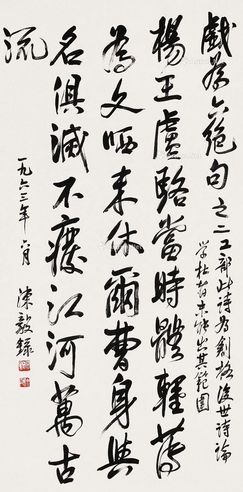 戲為六絕句之二
工部此詩为創格後世詩論
学杜者未能出其範圍
楊王盧駱當時體輕薄
為文哂未休爾曹身與
名俱滅不廢江河萬古
流
一九六三年
陳毅錄